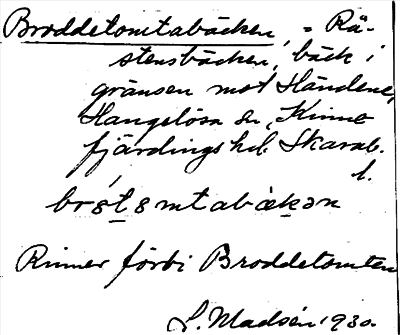 Broddetomtabäcken, = Rå-
stensbäcken, bäck i
gränsen mot Händene,
Hangelösa sn, Kinne
fjärdings hd. Skarab.
l.
Rinner förbi Broddetomten
L. Madsén 1930.